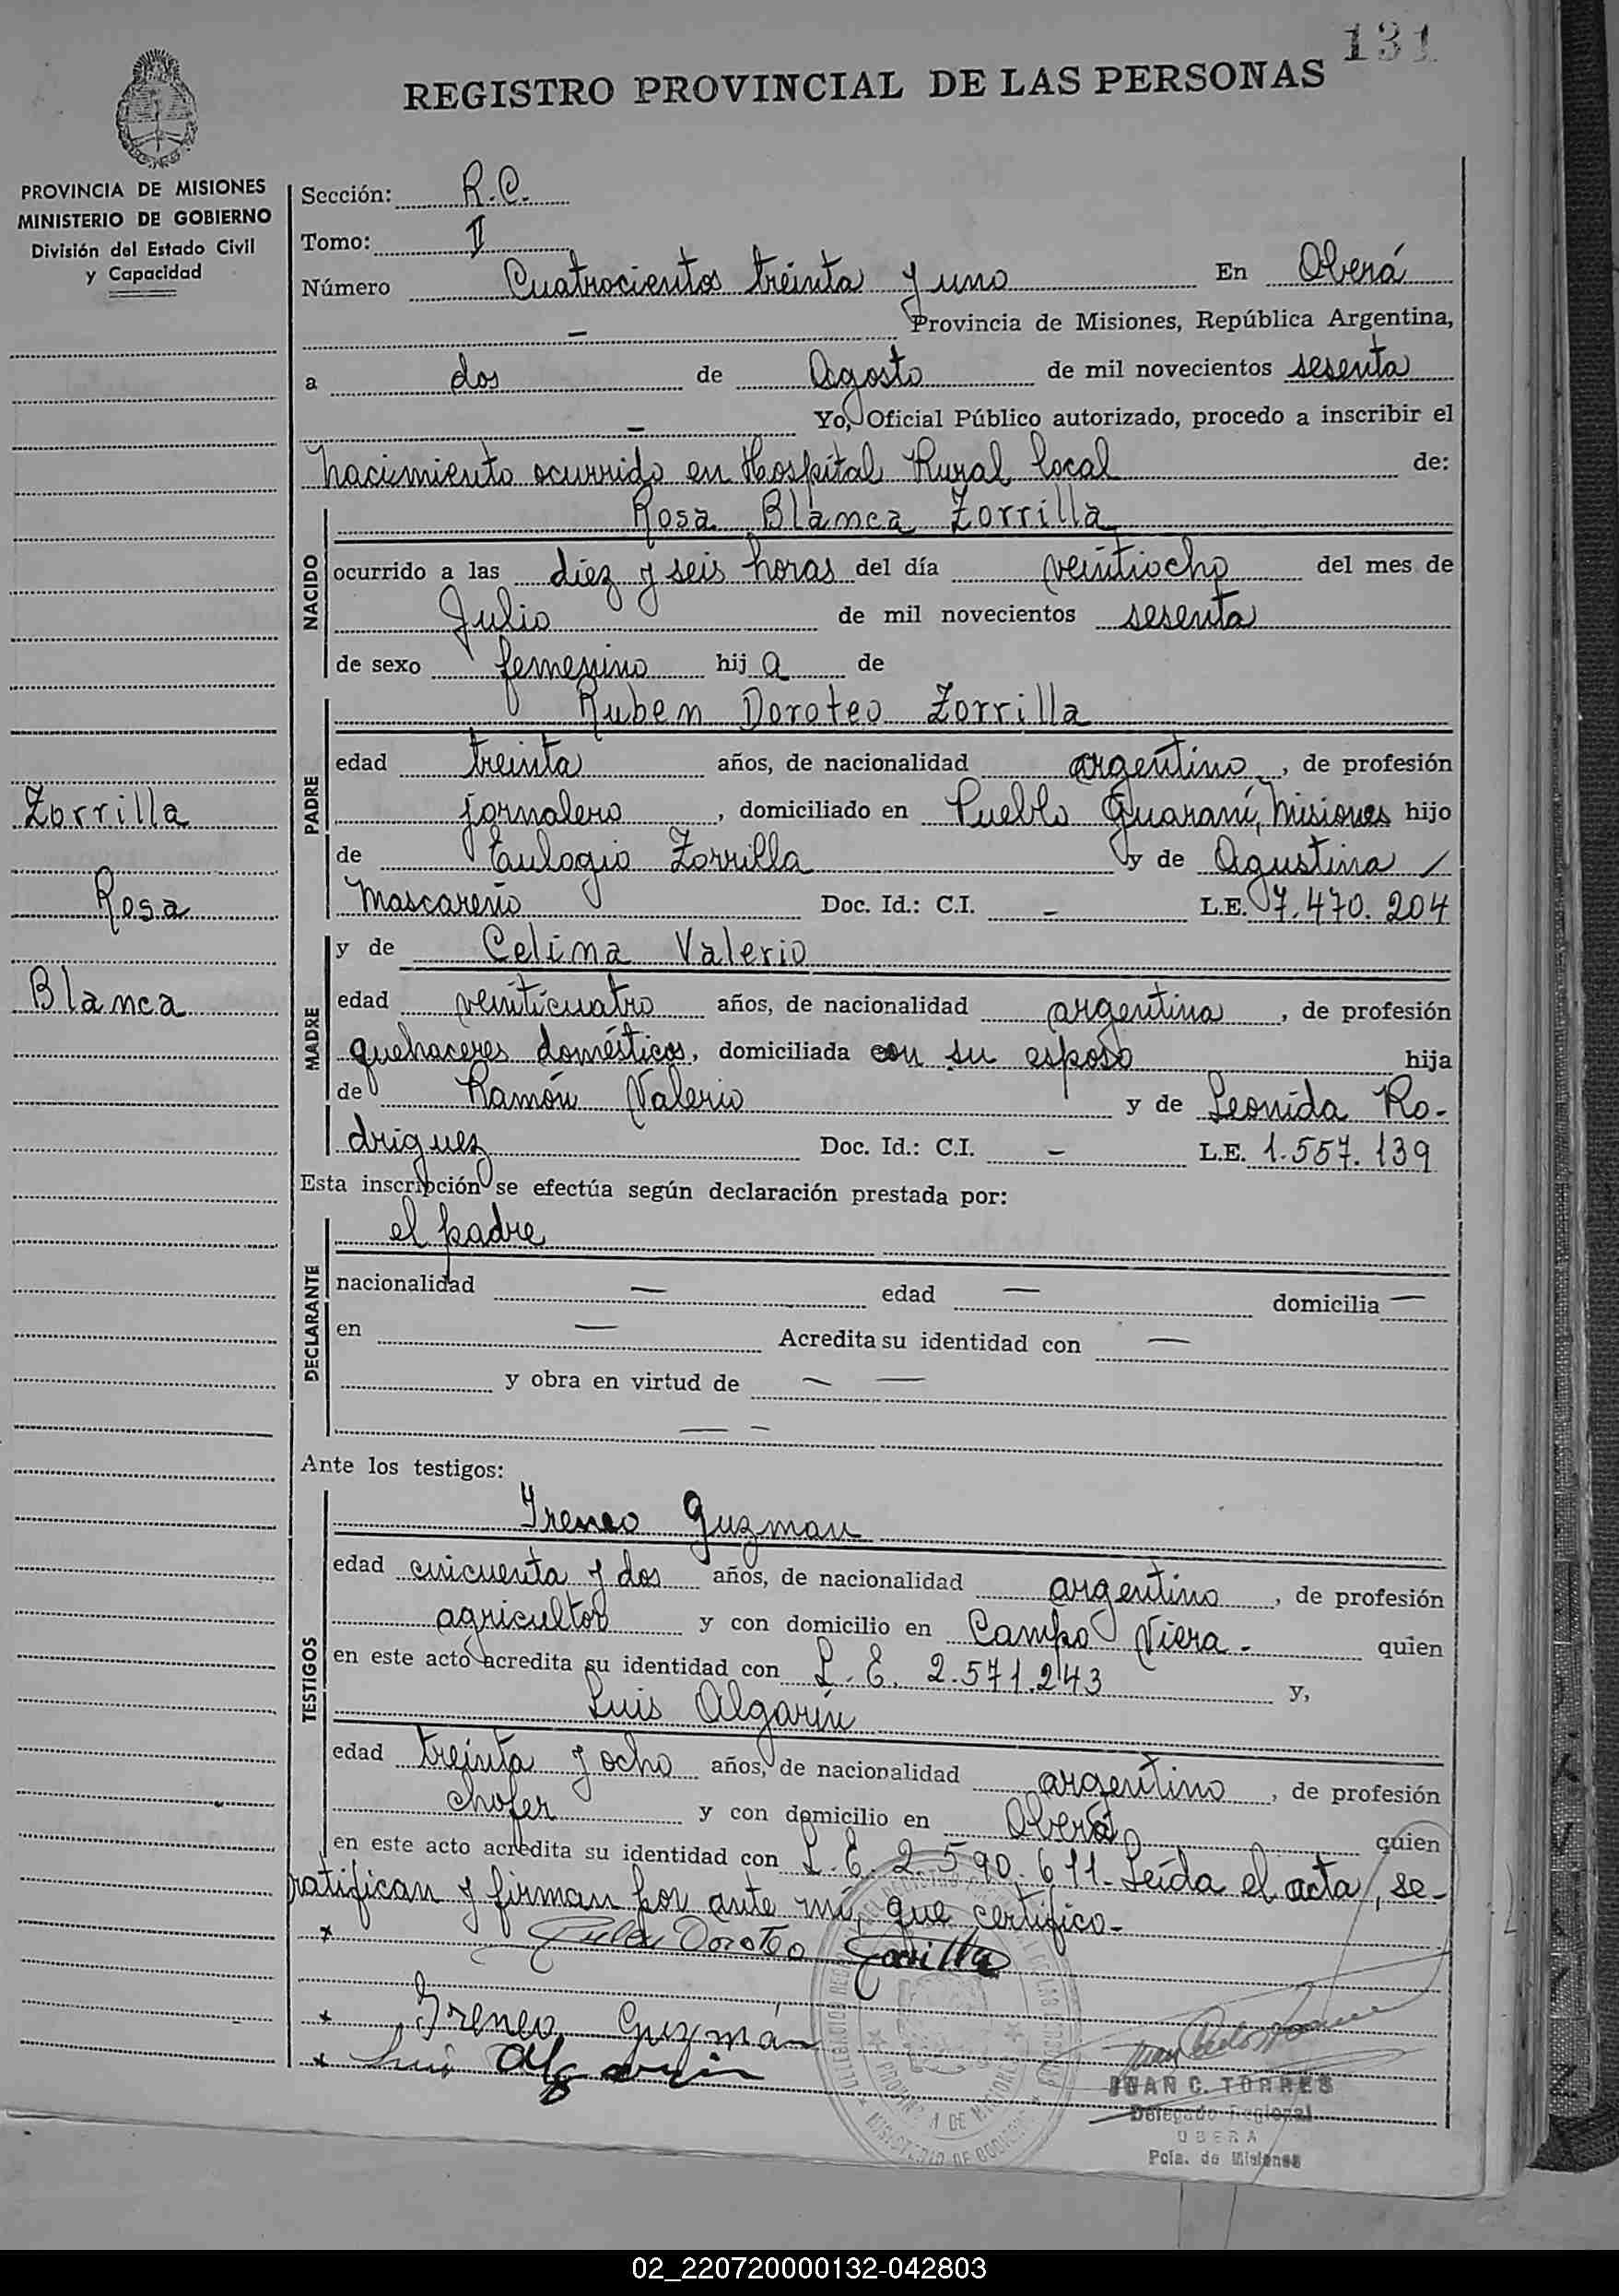 131
REGISTRO PROVINCIAL DE LAS PERSONAS
PROVINCIA DE MISIONES
MINISTERIO DE GOBIERNO
División del Estado Civil
y Capacidad
Sección: R.C.
Tomo: II
Número Cuatrocientos treinta y uno En Oberá
– Provincia de Misiones, República Argentina,
a dos de Agosto de mil novecientos sesenta
– Yo, Oficial Público autorizado, procedo a inscribir el
nacimiento ocurrido en Hospital Rural local de:
NACIDO
Rosa Blanca Zorrilla
ocurrido a las diez y seis horas del día veintiocho del mes de
Julio de mil novecientos sesenta
de sexo femenino hija de
PADRE
Ruben Doroteo Zorrilla
edad treinta años, de nacionalidad argentino, de profesión
jornalero, domiciliado en Pueblo Guaraní, Misiones hijo
de Eulogio Zorrilla y de Agustina /
Mascareño Doc. Id.: C.I. – L.E. 7.470.204
Zorrilla
Rosa
Blanca
MADRE
y de Celina Valerio
edad veinticuatro años, de nacionalidad argentina, de profesión
quehaceres domésticos, domiciliada con su esposo hija
de Ramón Valerio y de Leonida Ro-
driguez Doc. Id.: C.I. – L.E. 1.557.139
Esta inscripción se efectúa según declaración prestada por:
DECLARANTE
el padre
nacionalidad — edad — domicilia —
en — Acredita su identidad con —
y obra en virtud de — —
— –
Ante los testigos:
TESTIGOS
Ireneo Guzman
edad cincuenta y dos años, de nacionalidad argentino, de profesión
agricultor y con domicilio en Campo Viera - quien
en este acto acredita su identidad con L.E. 2.571.243 y,
Luis Algarín
edad treinta y ocho años, de nacionalidad argentino, de profesión
chofer y con domicilio en Oberá quien
en este acto acredita su identidad con L.E. 2.590.611- Leída el acta, se-
ratifican y firman por ante mí, que certifico-
x Doroteo Zorrilla
x Ireneo Guzmán
x Luis Algarin
JUAN C. TORRES
Delegado Regional
OBERA
Pcia. de Misiones
PROVINCIA DE MISIONES
MINISTERIO DE GOBIERNO
02_220720000132-042803